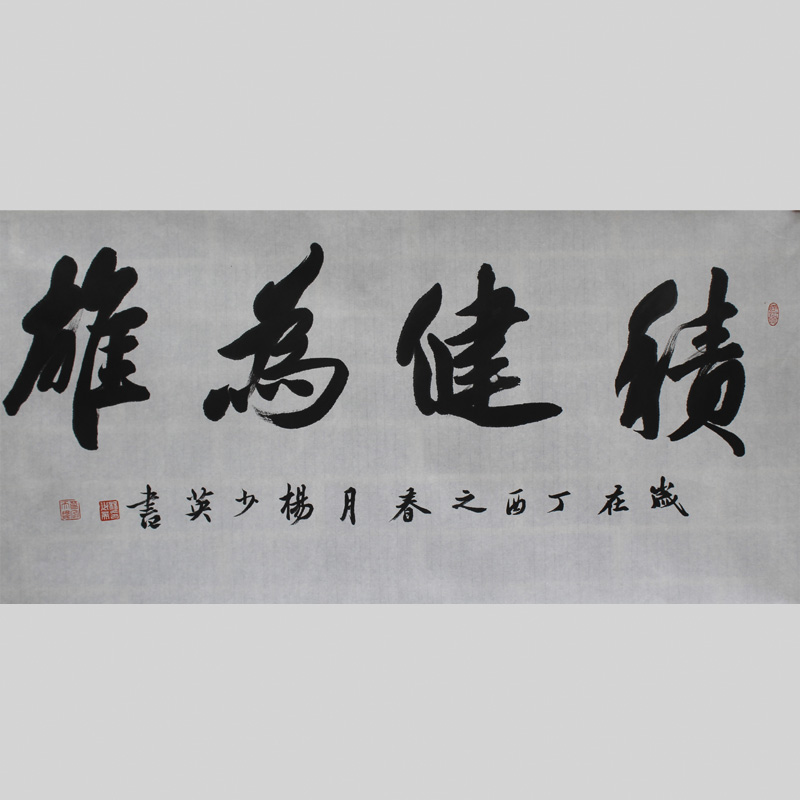 積健為雄
歲在丁酉之春月楊少英書